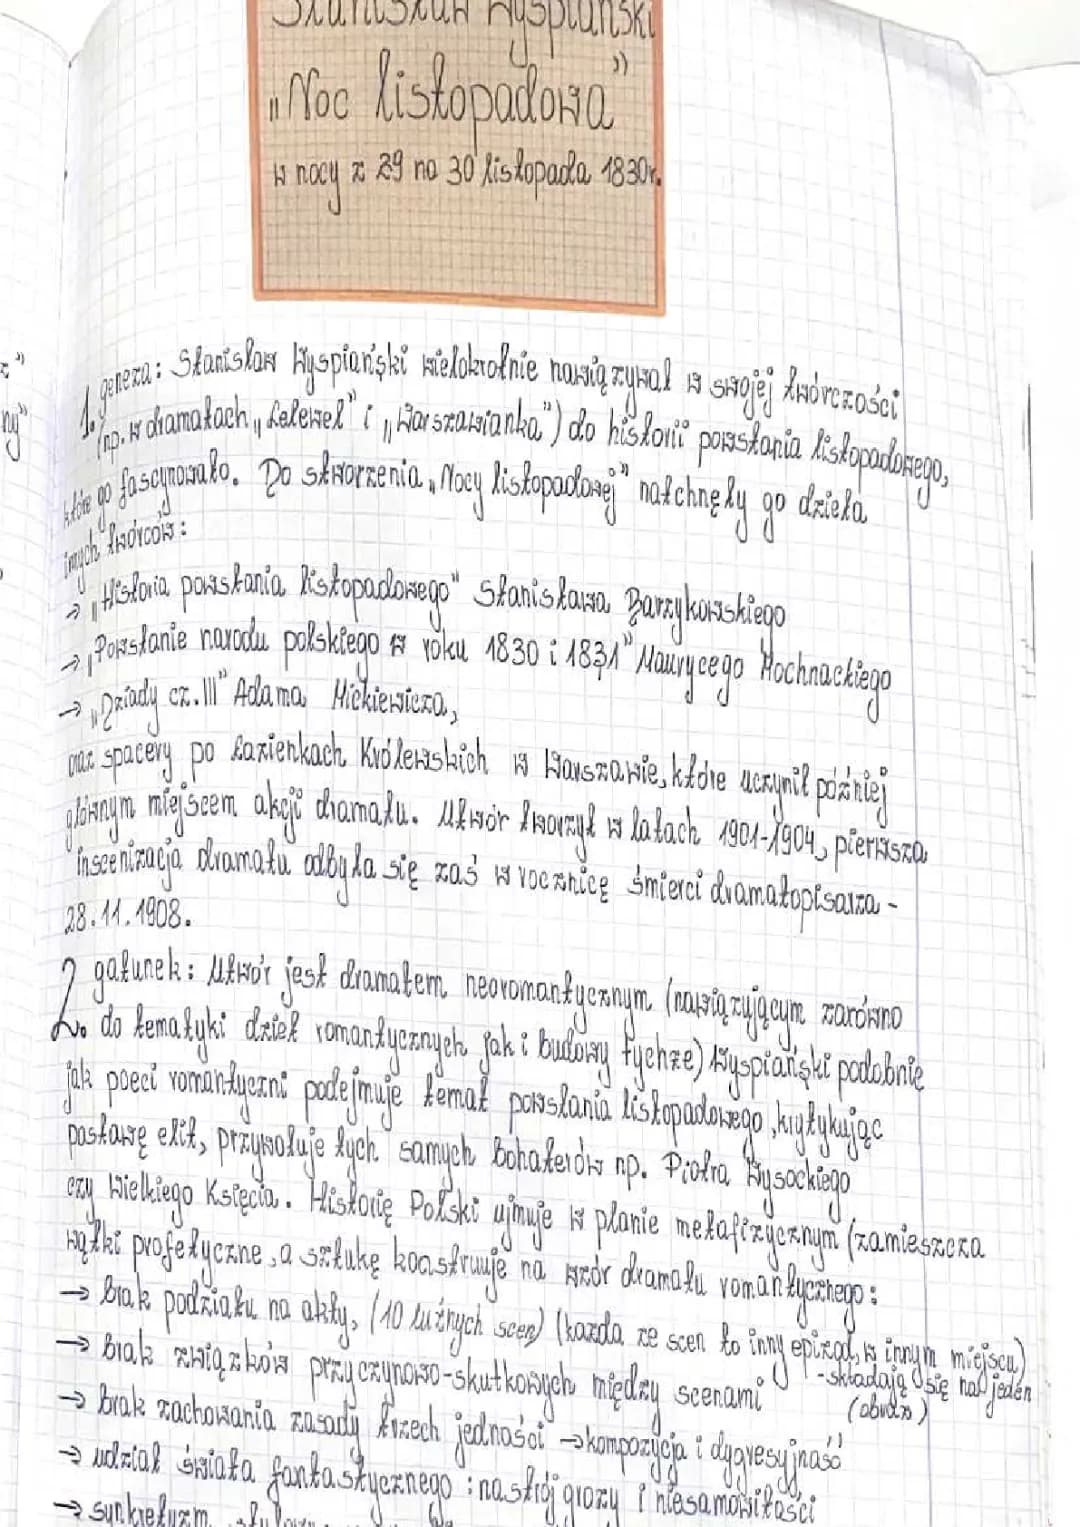 Stanisław Wyspiański
„Noc listopadowa"
w nocy z 29 na 30 listopada 1830r.
z"
ny"
1. geneza: Stanisław Wyspiański wielokrotnie nawiązywał w swojej twórczości
(np. w dramatach „Lelewel" i „Warszawianka") do historii powstania listopadowego,
które go fascynowało. Do stworzenia „Nocy listopadowej" natchnęły go dzieła
innych twórców:
→ „Historia powstania listopadowego" Stanisława Barzykowskiego
→ „Powstanie narodu polskiego w roku 1830 i 1831" Maurycego Mochnackiego
→ „Dziady cz. III" Adama Mickiewicza,
oraz spacery po Łazienkach Królewskich w Warszawie, które uczynił później
głównym miejscem akcji dramatu. Utwór tworzył w latach 1901-1904, pierwsza
inscenizacja dramatu odbyła się zaś w rocznicę śmierci dramatopisarza -
28.11.1908.
2. gatunek: Utwór jest dramatem neoromantycznym (nawiązującym zarówno
do tematyki dzieł romantycznych jak i budowy tychże) Wyspiański podobnie
jak poeci romantyczni podejmuje temat powstania listopadowego, krytykując
postawę elit, przywołuje tych samych bohaterów np. Piotra Wysockiego
czy Wielkiego Księcia. Historię Polski ujmuje w planie metafizycznym (zamieszcza
wątki profetyczne, a sztukę konstruuje na wzór dramatu romantycznego:
→ brak podziału na akty, (10 luźnych scen) (każda ze scen to inny epizod, w innym miejscu)
→ brak związków przyczynowo-skutkowych między scenami - składają się na jeden
(obraz)
→ brak zachowania zasady trzech jedności → kompozycja i dygresyjność
→ udział świata fantastycznego: nastrój grozy i niesamowitości
→ synkretyzm